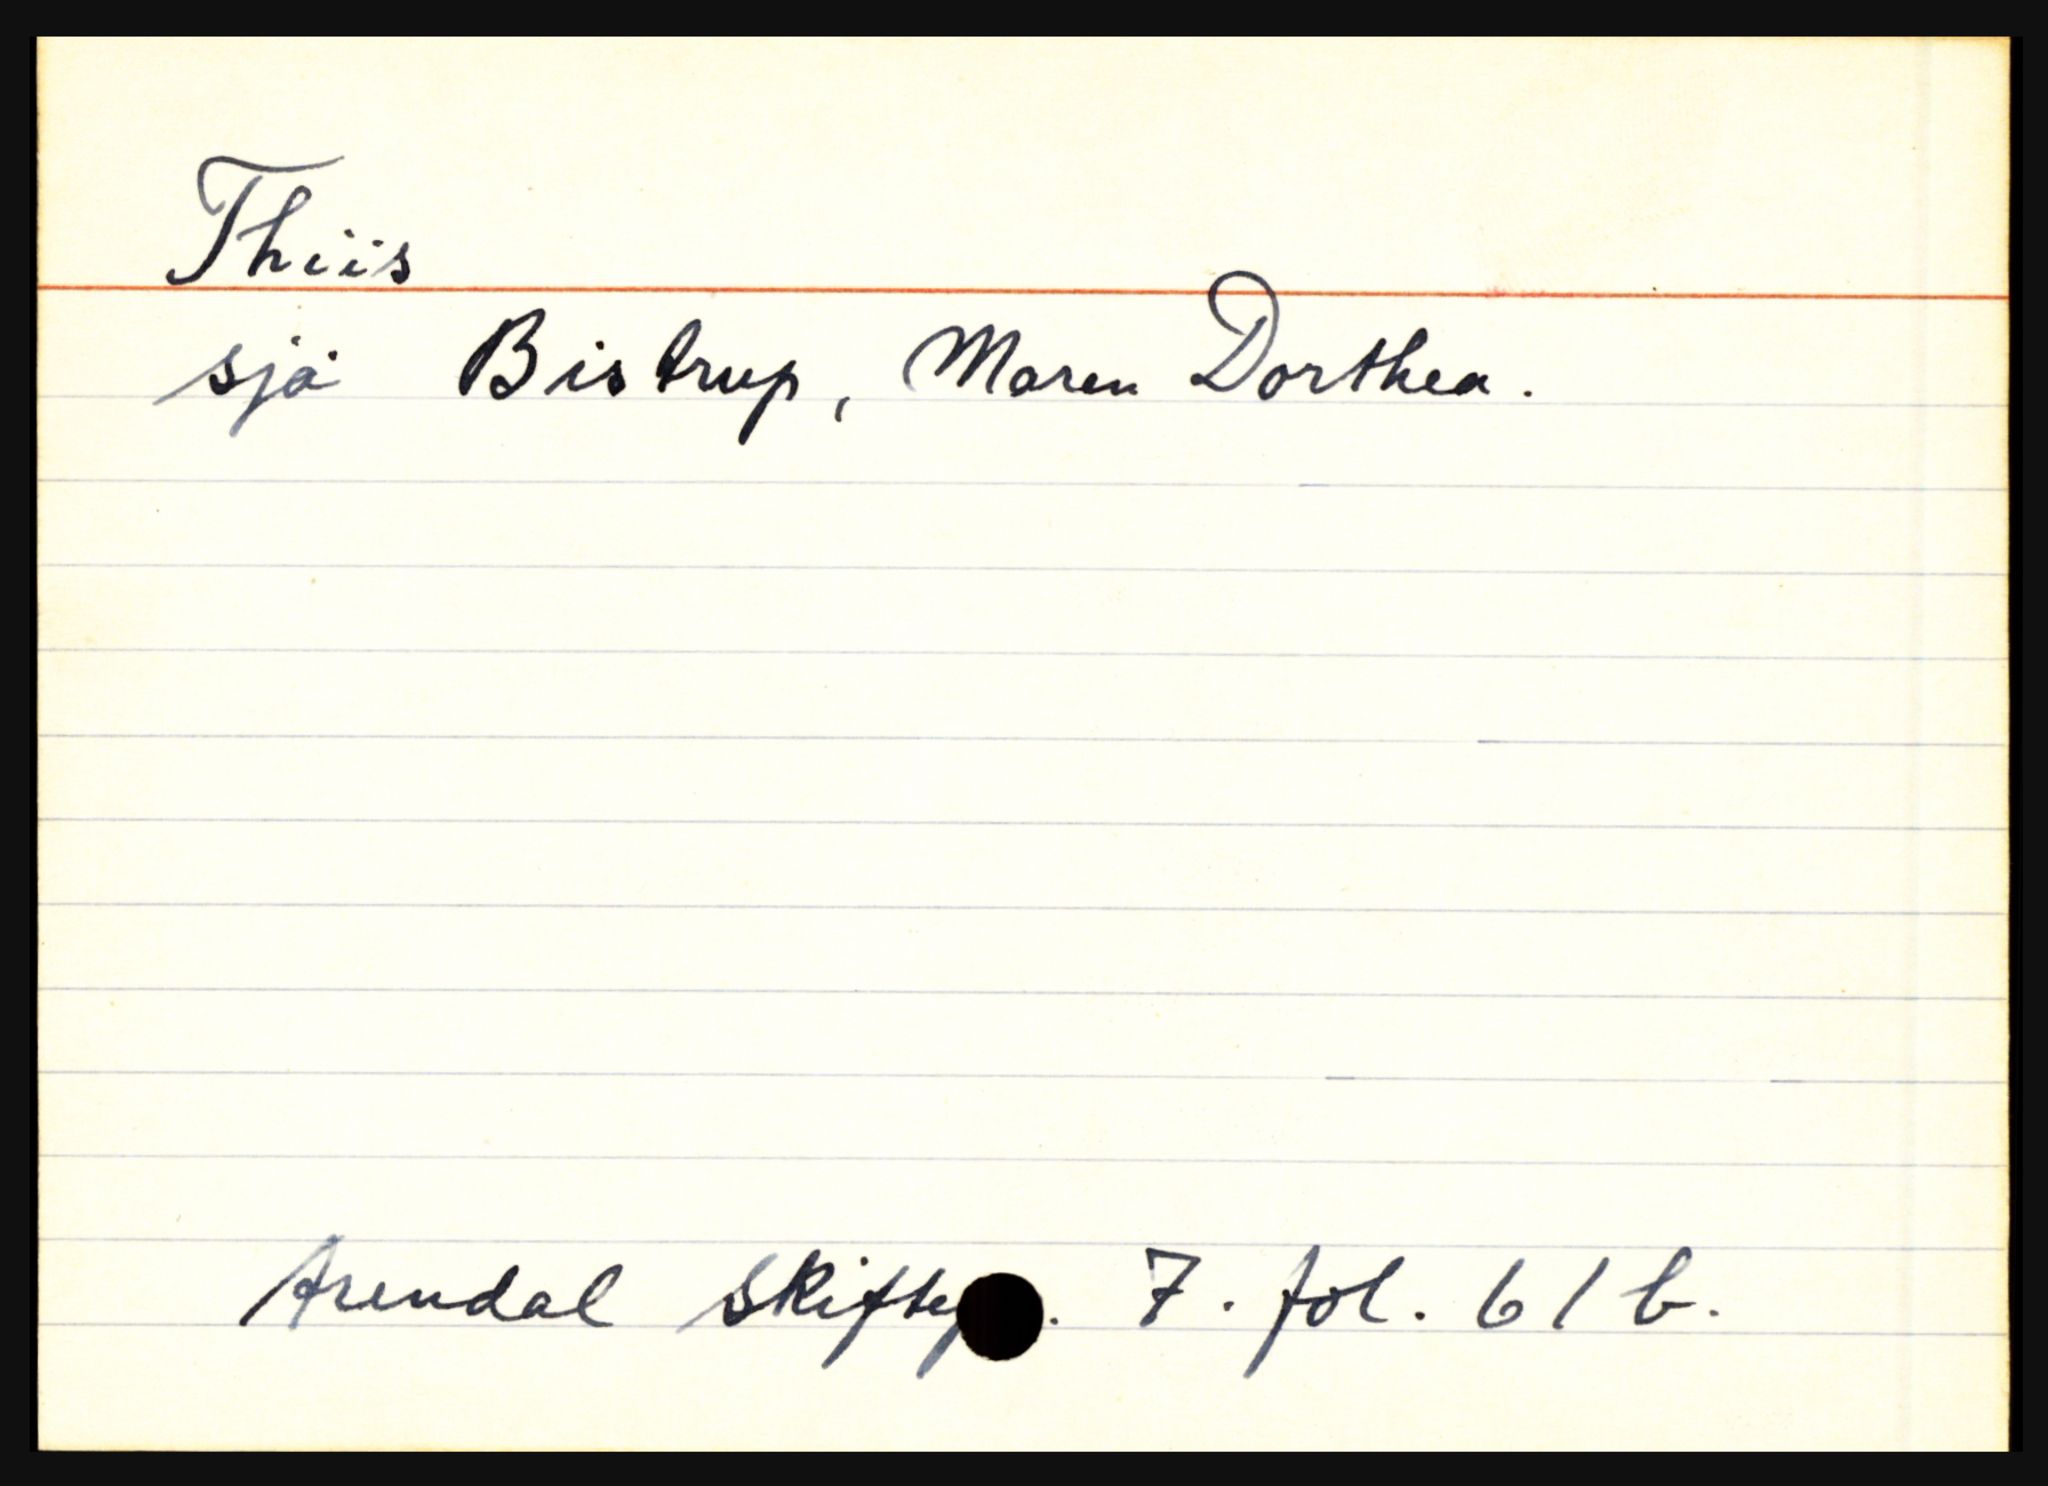 Thiis
sjå Bistrup, Maren Dorthea.
Arendal 7. fol. 61b.